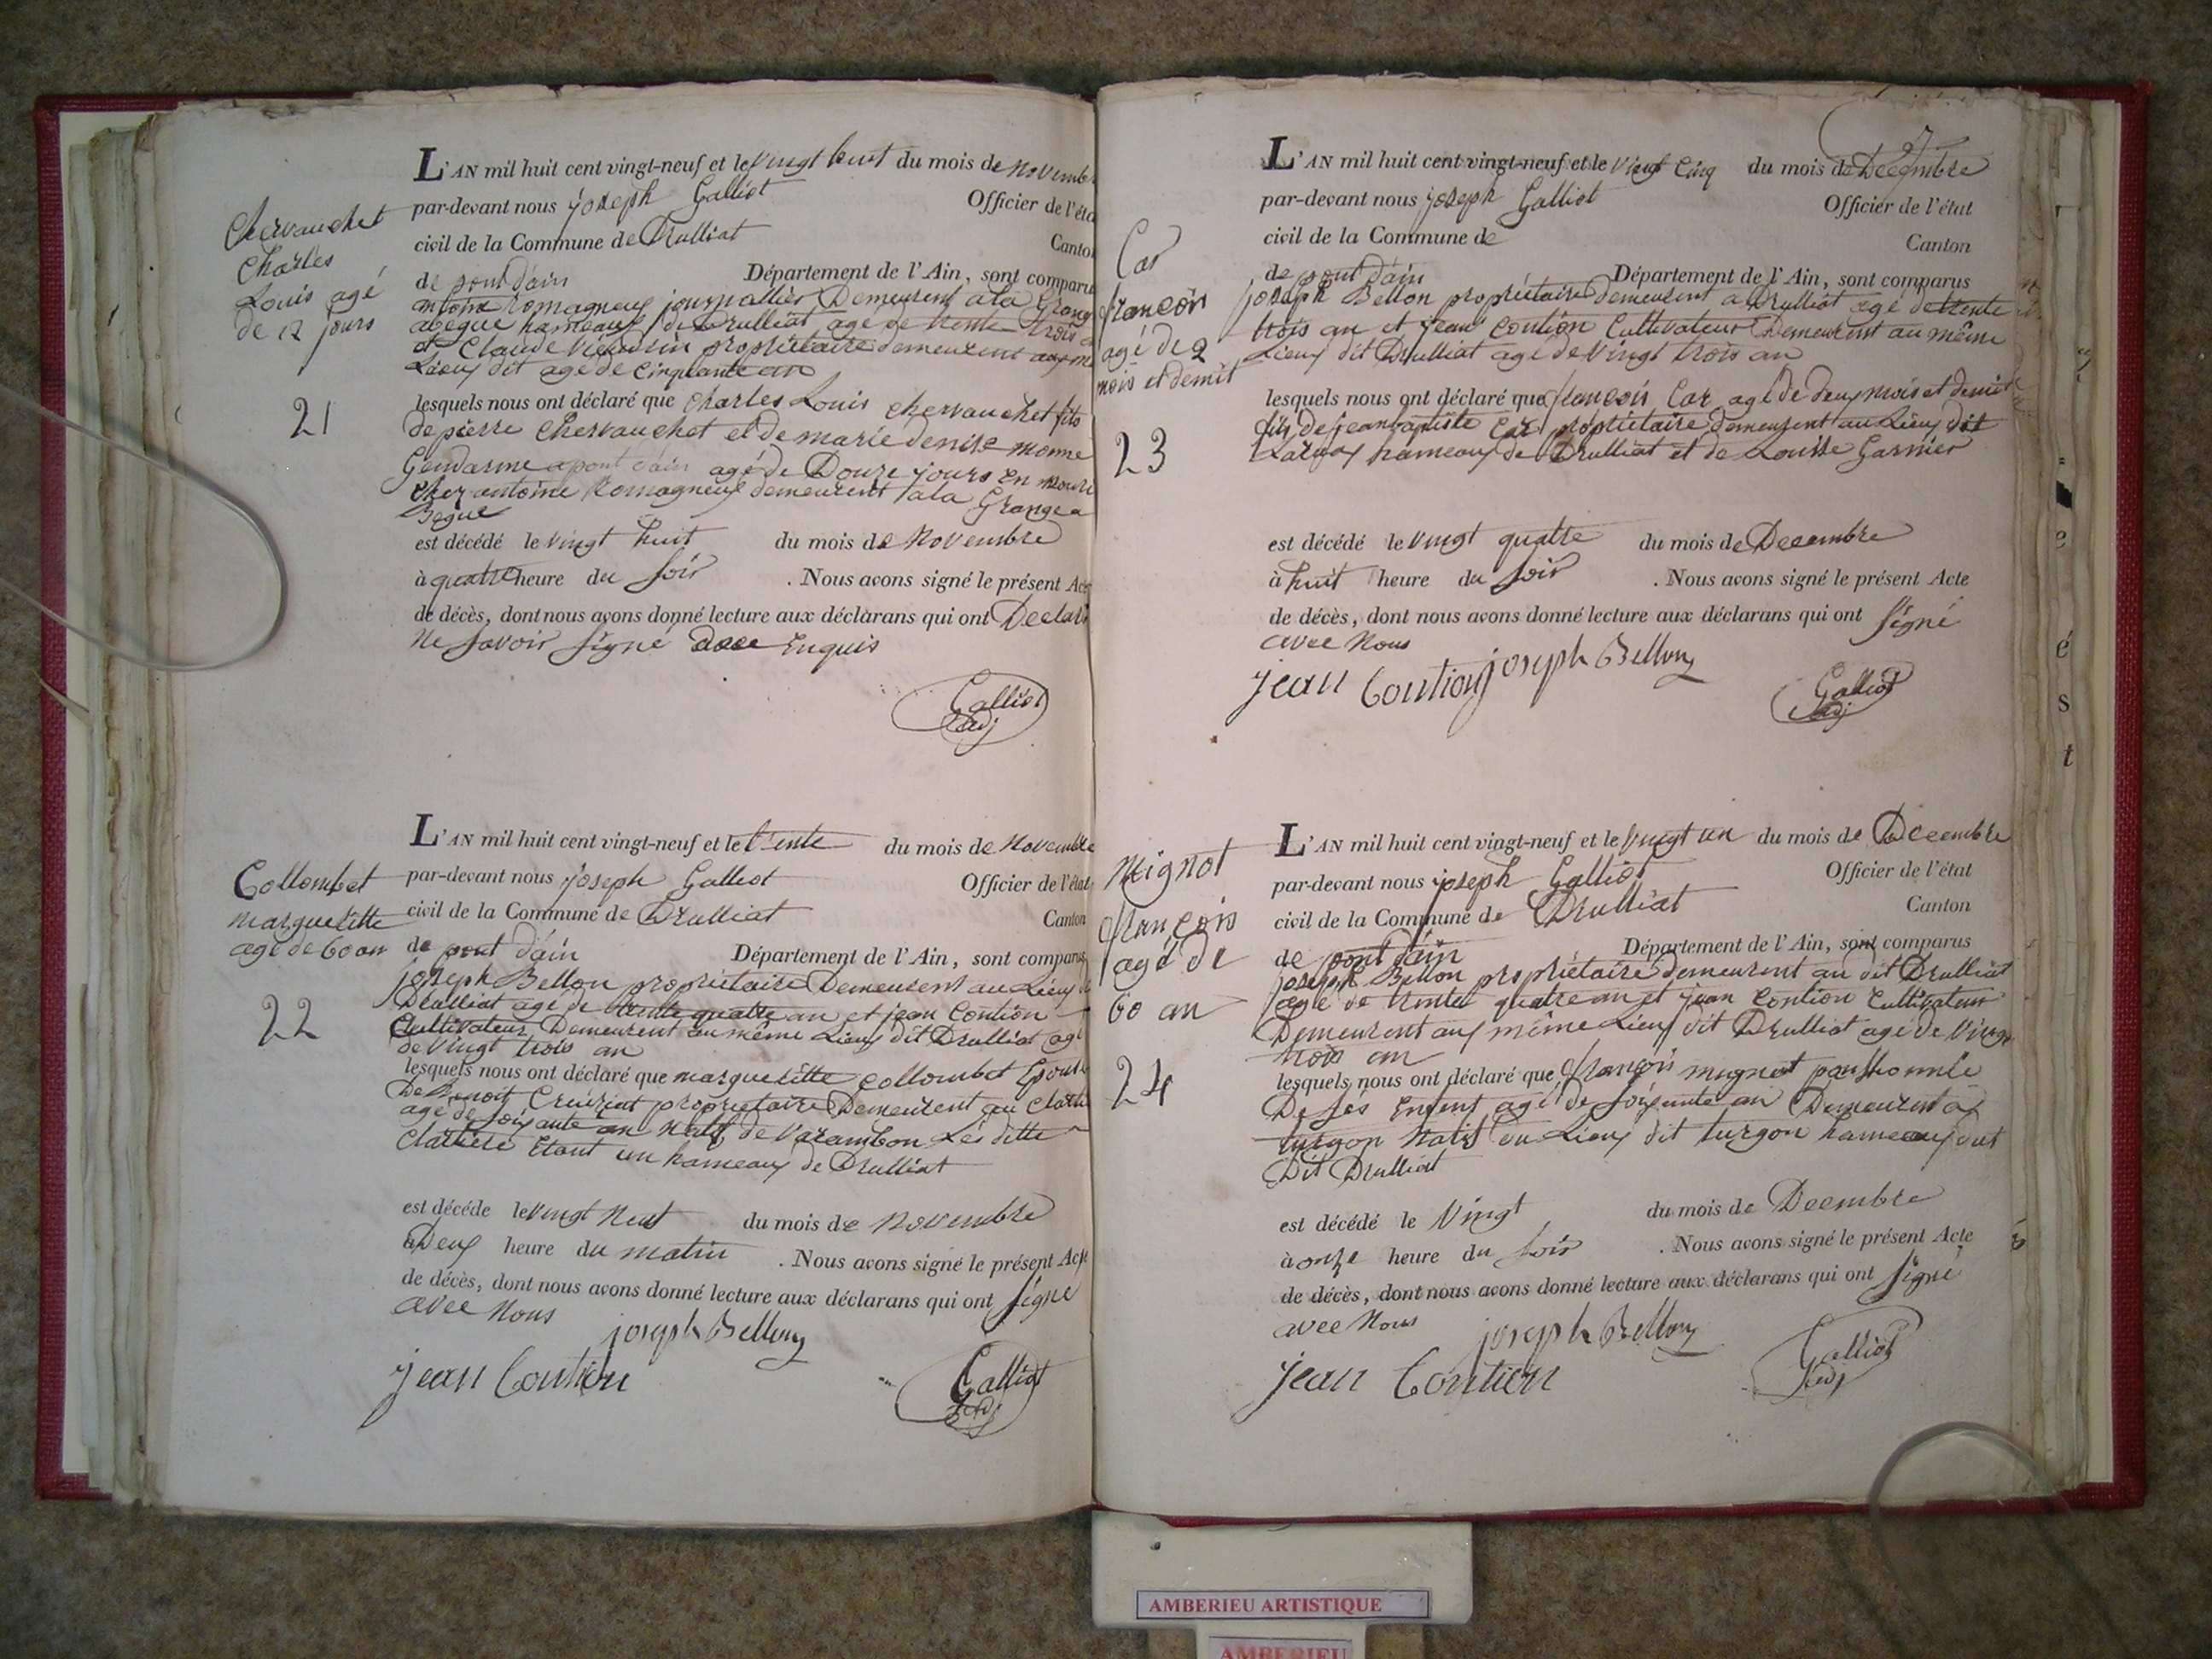 L'AN mil huit cent vingt-neuf et le vingt huit du mois de Novembr
par-devant nous joseph Galliot Officier de l'éta
civil de la Commune de Drulliat Canto
de pont dain Département de l'Ain, sont comparu
antoine Romagneux journallier Demeurent a la Grang
abegue hameaux de Drulliat agé de trente trois a
et Claude propriétaire demeurent au m
Lieux dit agé de Cinquante an
lesquels nous ont déclaré que Charles Louis Chervauchet fils
de pierre Chervauchet et de marie denise monne
Gendarme a pont dain agé de Douze jours en nouri
Chez antoine Romagneux demeurent a la Grange a
Begue
est décédé le vingt huit du mois de Novembre
à quatre heure du soir . Nous avons signé le présent Act
de décès, dont nous avons donné lecture aux déclarans qui ont Declar
Ne savoir signé de ce Enquis
Galliot
adj
Chervauchet
Charles
Louis agé
de 12 jours
21
L'AN mil huit cent vingt-neuf et le trente du mois de Novembre
par-devant nous joseph Galliot Officier de l'état
civil de la Commune de Drulliat Canton
de pont dain Département de l'Ain, sont comparus
joseph Bellon propriétaire Demeurent au Lieux d
Drulliat agé de trente quatre an et jean Contion
Cultivateur Demeurent au même Lieux dit Drulliat agé
de vingt trois an
lesquels nous ont déclaré que margueritte Collombet Epouse
De Benoit propriétaire Demeurent au Clarti
agé de soixante an natif de Varambon Les ditte
Clartiere Etant un hameaux de Drulliat
est décédé le vingt Neuf du mois de Novembre
à Deux heure du matin . Nous avons signé le présent Act
de décès, dont nous avons donné lecture aux déclarans qui ont signé
avec Nous
joseph Bellon
jean Contion
Galliot
adj
Collombet
marguerite
agé de 60 an
22
L'AN mil huit cent vingt-neuf et le vingt Cinq du mois de Decembre
par-devant nous joseph Galliot Officier de l'état
civil de la Commune de Canton
de pont dain Département de l'Ain, sont comparus
joseph Bellon propriétaire demeurent a Drulliat agé de trente
trois an et jean Contion Cultivateur Demeurent au même
Lieux dit Drulliat agé de Vingt trois an
lesquels nous ont déclaré que françois Car agé de deux mois et demit
fils de jean baptiste Car propriétaire demeurent au Lieux dit
hameaux de Drulliat et de Louise Garnier
est décédé le vingt quatre du mois de Decembre
à huit heure du soir . Nous avons signé le présent Acte
de décès, dont nous avons donné lecture aux déclarans qui ont signé
avec Nous
jean Contion joseph Bellon
Galliot
adj
Car
françois
agé de 2
mois et demit
23
L'AN mil huit cent vingt-neuf et le vingt un du mois de Decembre
par-devant nous joseph Galliot Officier de l'état
civil de la Commune de Drulliat Canton
de pont dain Département de l'Ain, sont comparus
joseph Bellon propriétaire demeurent au dit Drulliat
agé de trente quatre an et jean Contion Cultivateur
Demeurent aux même Lieux dit Drulliat agé de Vingt
trois an
lesquels nous ont déclaré que françois mignot
De Ses Enfent agé de soixante an Demeurent a
turgon Natif du Lieux dit turgon hameaux
Dit Drulliat
est décédé le Vingt du mois de Decembre
à onze heure du soir . Nous avons signé le présent Acte
de décès, dont nous avons donné lecture aux déclarans qui ont signé
avec Nous
joseph Bellon
jean Contion
Galliot
adj
Mignot
françois
agé de
60 an
24
é
s
t
AMBERIEU ARTISTIQUE
AMBERIEU